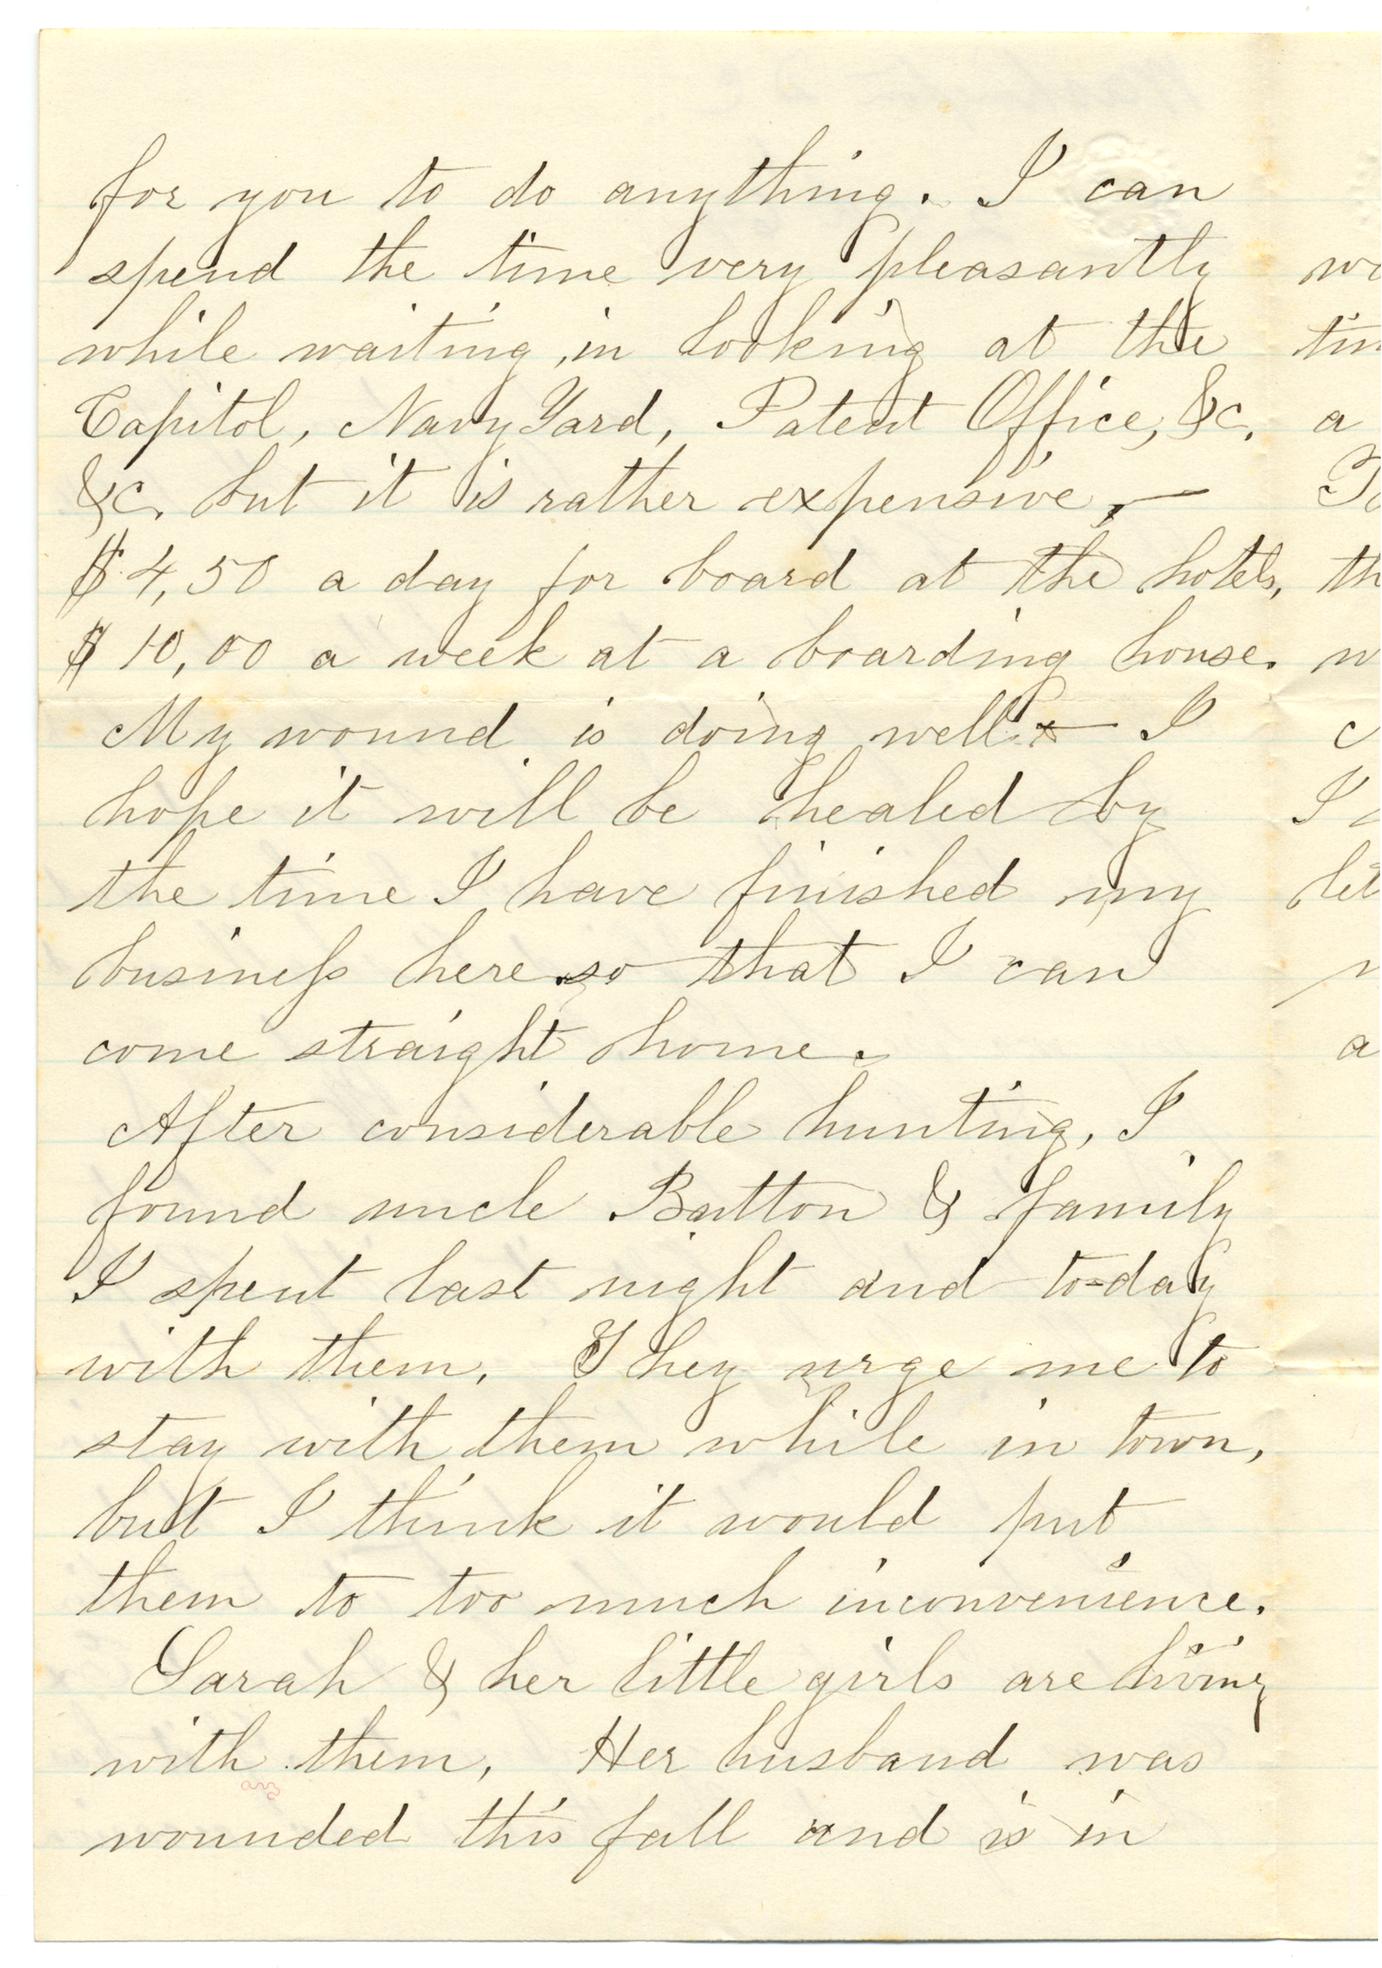 for you to do anything. I can
spend the time very pleasantly
while waiting, in looking at the
Capitol, Navy Yard, Patent Office, &c.
&c. but it is rather expensive, —
$4,50 a day for board at the hotels,
$10,00 a week at a boarding house.
My wound is doing well — I
hope it will be healed by
the time I have finished my
business here so that I can
come straight home.
After considerable hunting, I
found uncle Button & family
I spent last night and to-day
with them. They urge me to
stay with them while in town,
but I think it would put
them to too much inconvenience.
Sarah & her little girls are living
with them. Her husband was
wounded this fall and is in